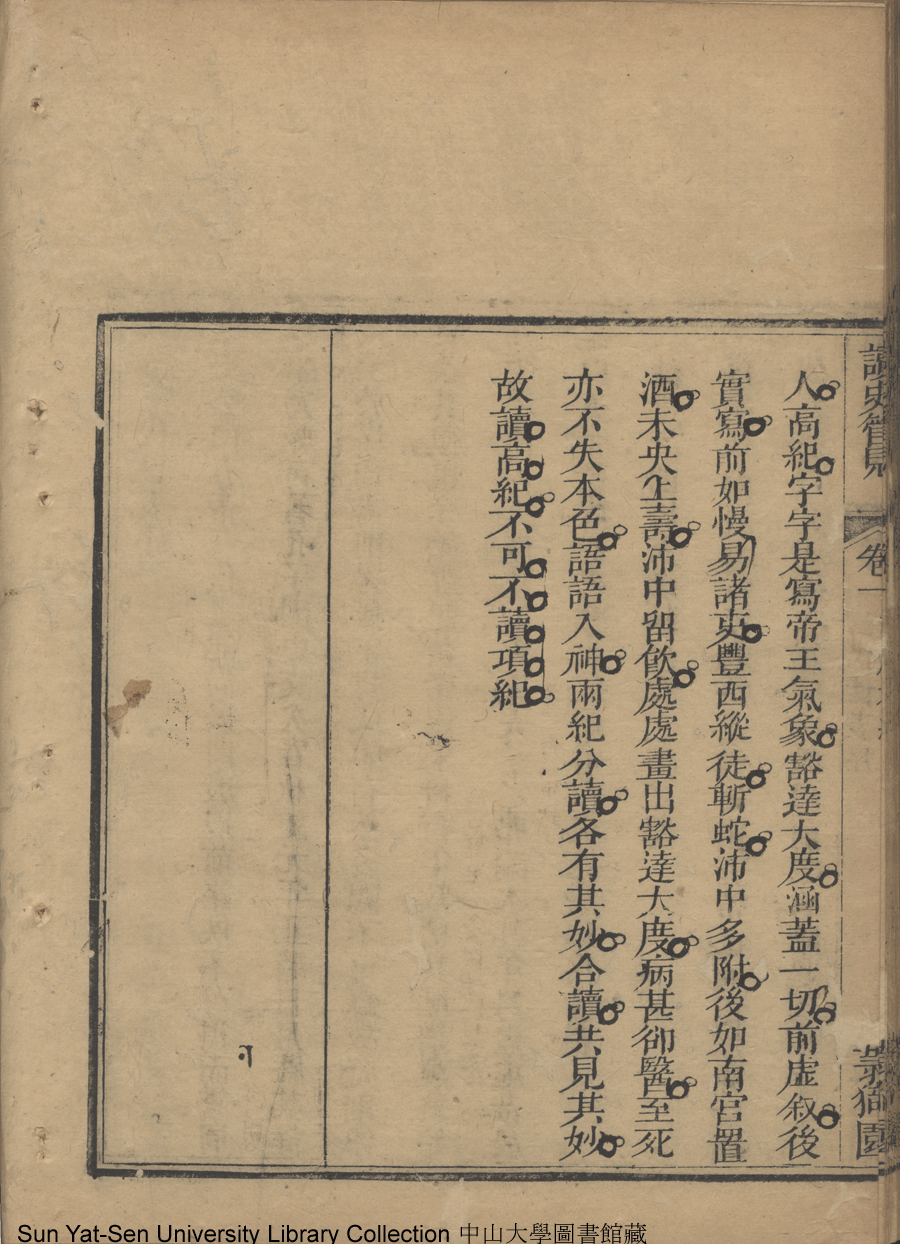 讀史管見
卷一
人高紀字字是寫帝王氣象豁達大度涵蓋一切前虛叙後
實寫前如慢易諸吏豐西縱徒斬蛇沛中多附後如南宮置
酒未央上壽沛中留飲處處畫出豁達大度病甚卻醫至死
亦不失本色語語入神兩紀分讀各有其妙合讀共見其妙
故讀高紀不可不讀項紀
Sun Yat-Sen University Library Collection 中山大學圖書館藏